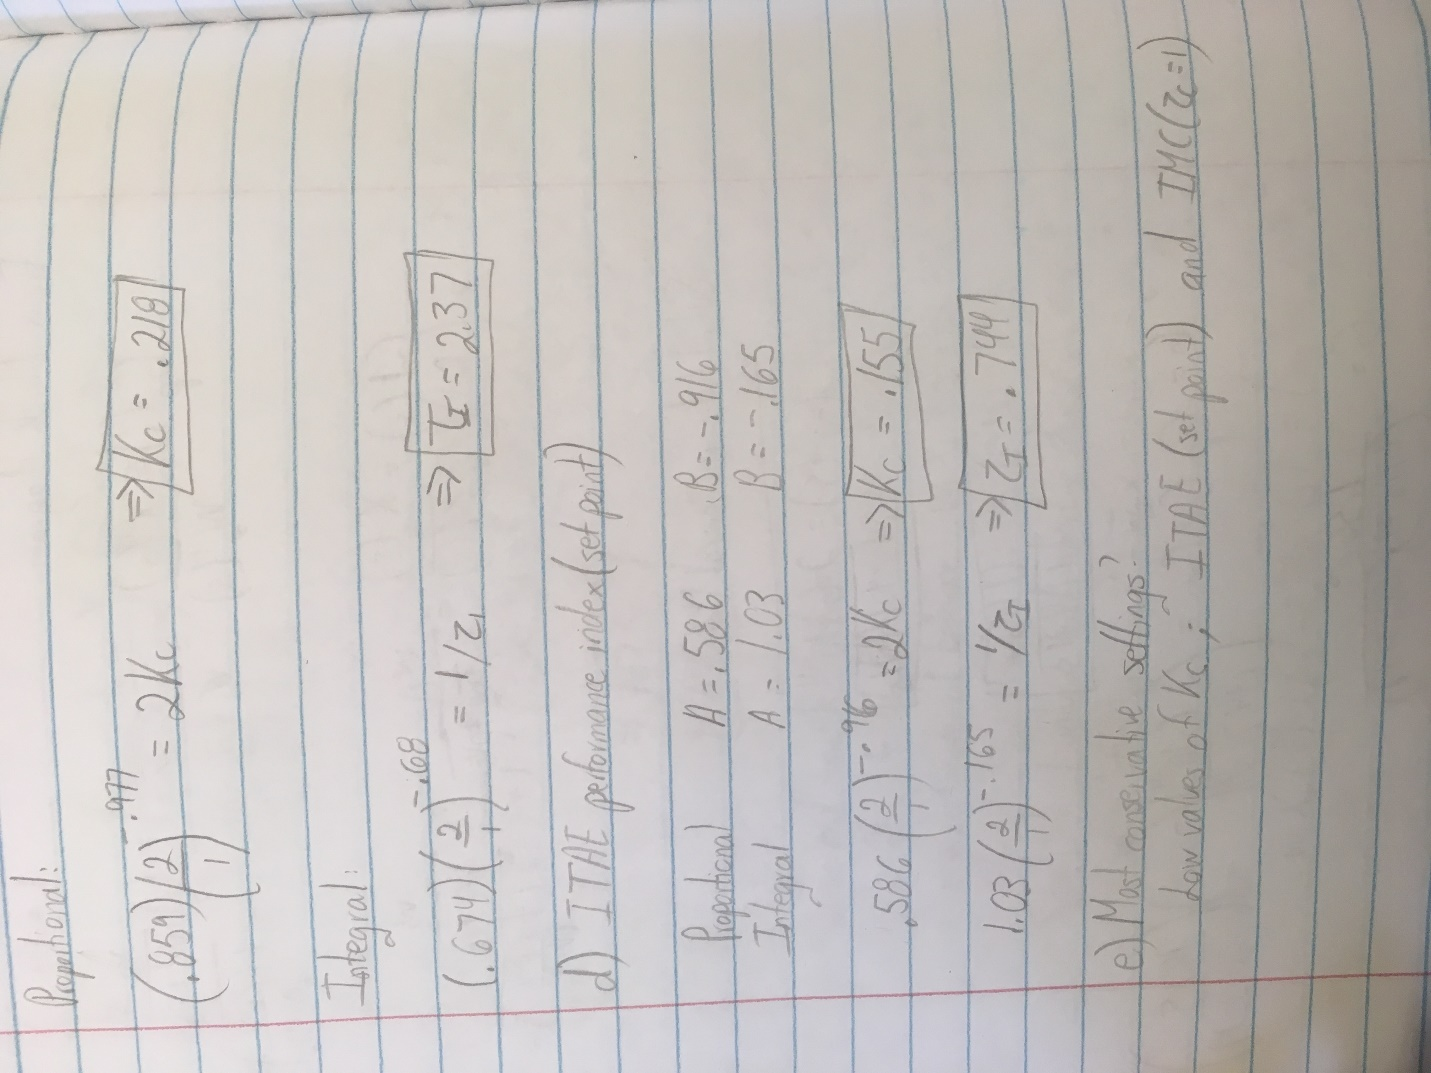 Proportional:
(.859)(2/1)^-.977 = 2Kc ⇒ Kc = .218
Integral:
(.674)(2/1)^-.68 = 1/τI ⇒ τI = 2.37
d) ITAE performance index (set point)
Proportional A = .586 B = -.916
Integral A = 1.03 B = -.165
.586(2/1)^-.916 = 2Kc ⇒ Kc = .155
1.03(2/1)^-.165 = 1/τI ⇒ τI = .744
e) Most conservative settings?
Low values of Kc ; ITAE (set point) and IMC (τc=1)